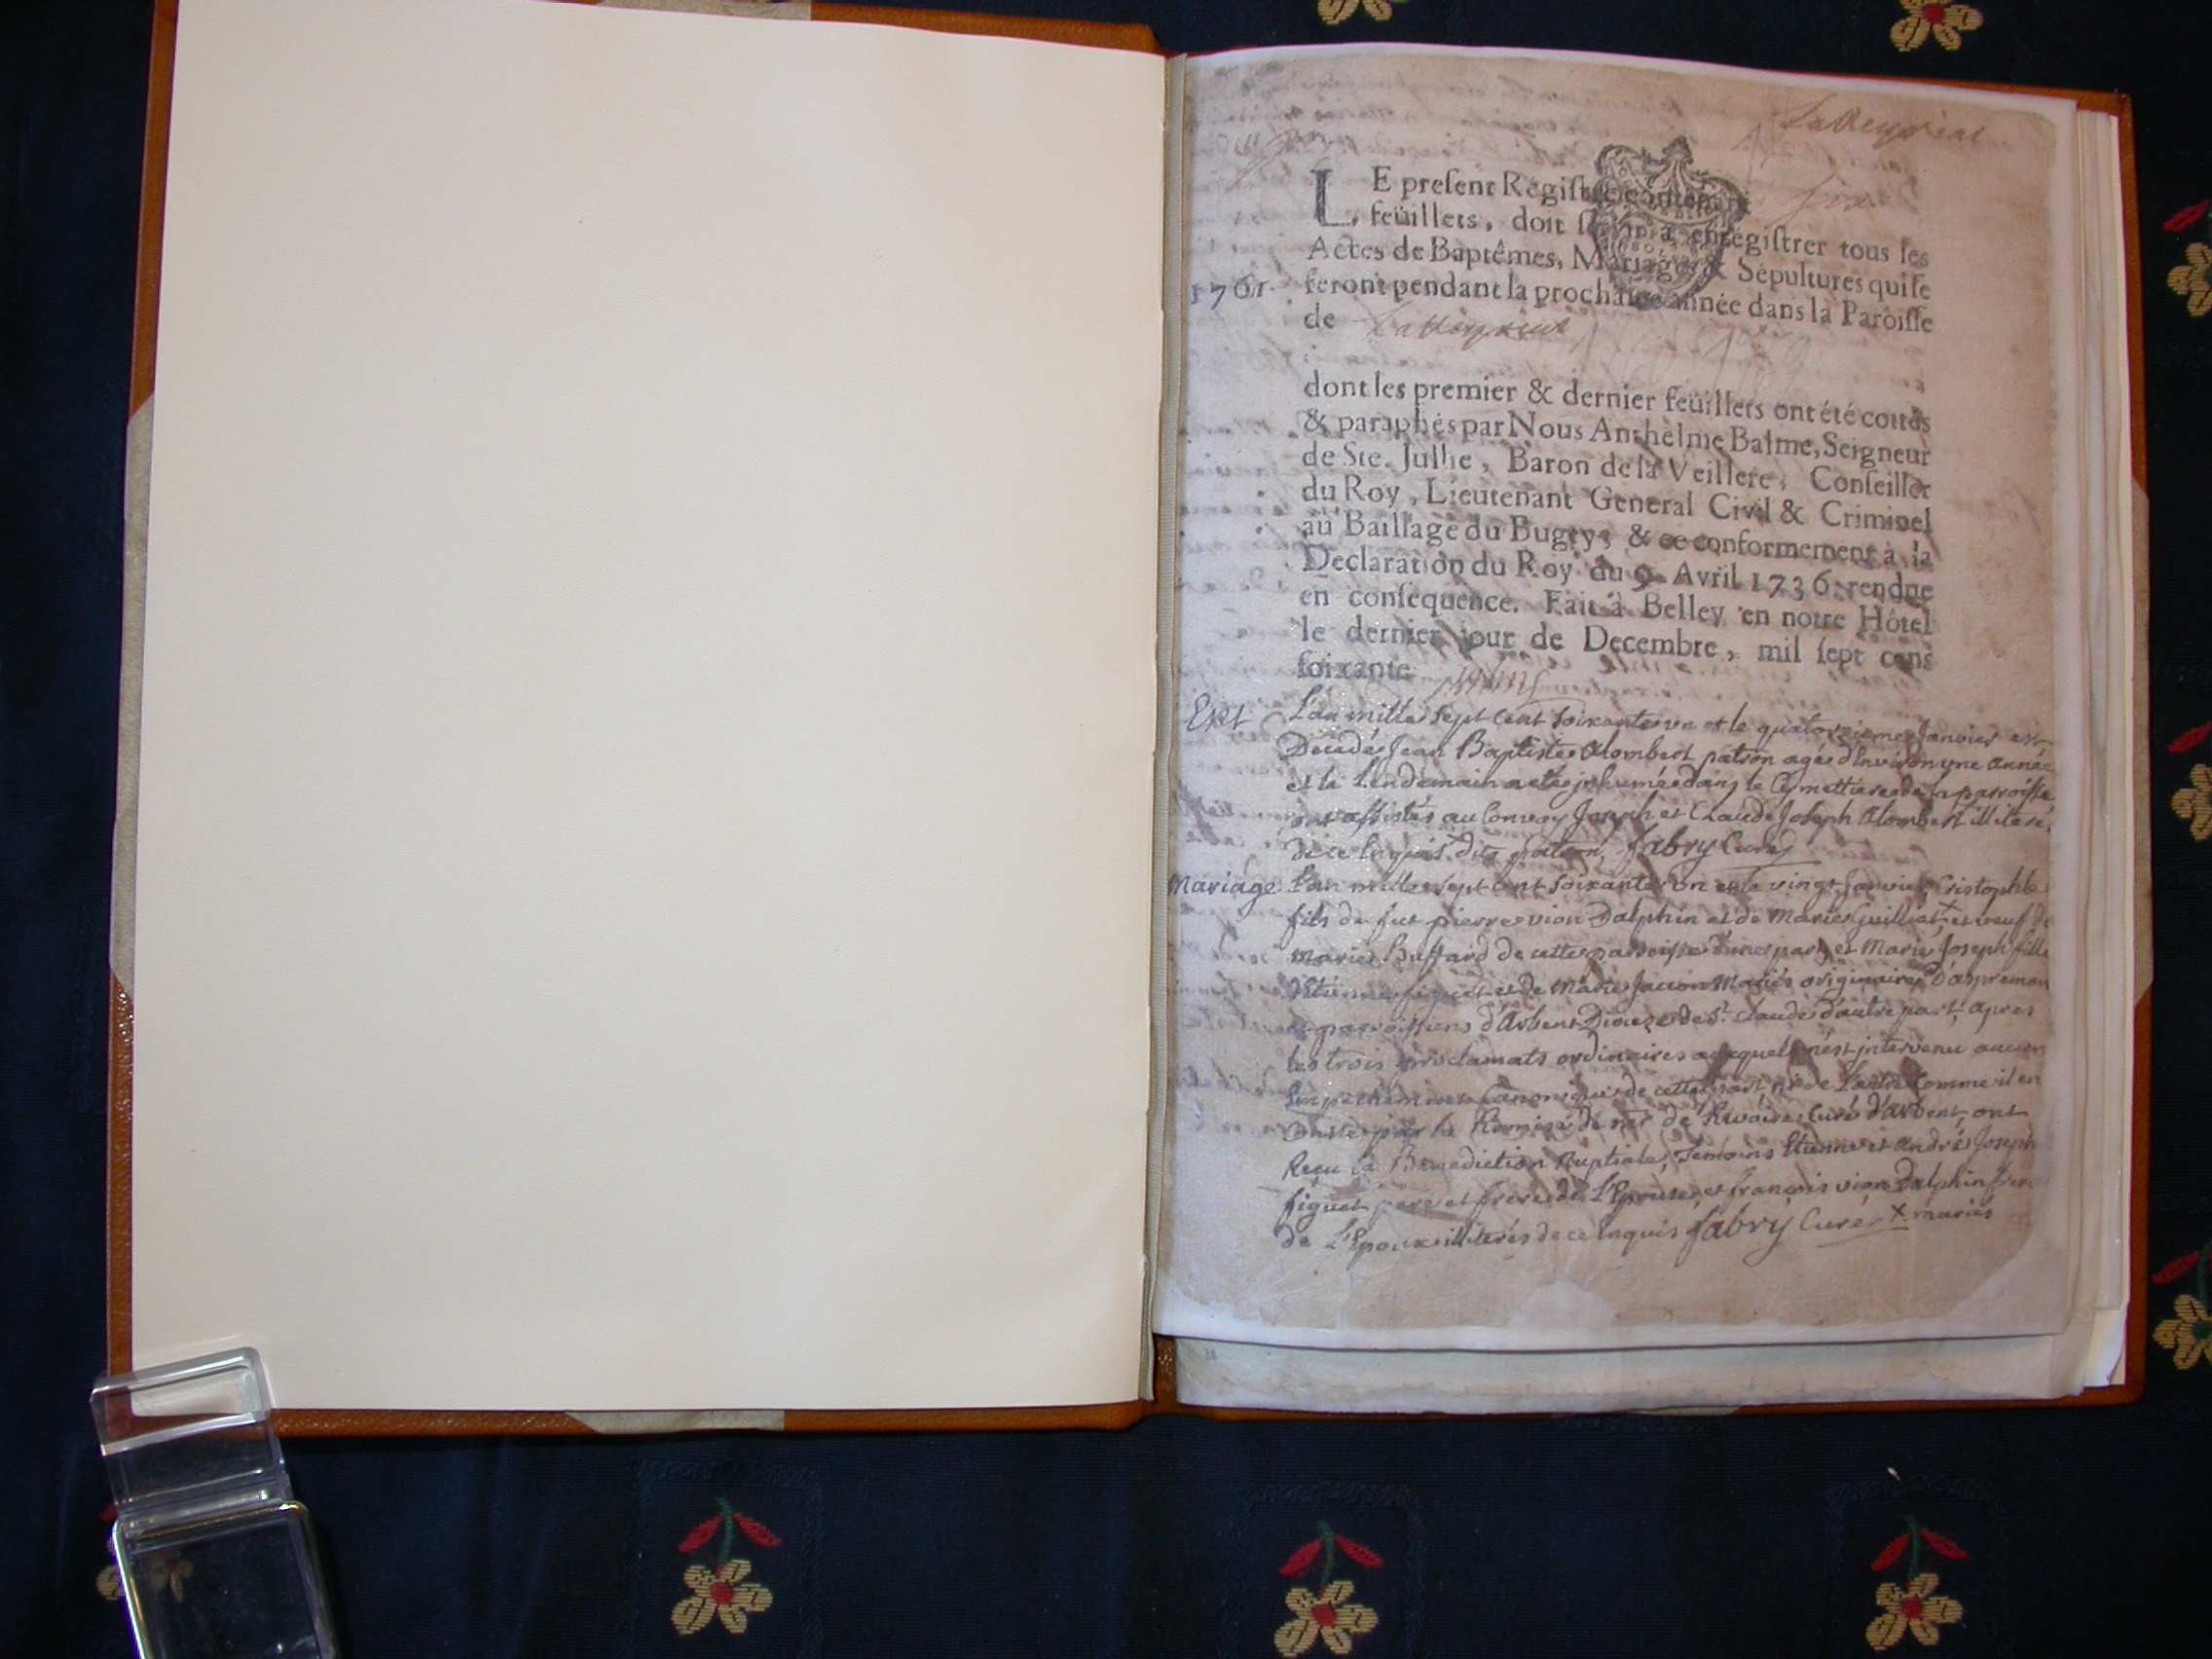 LE present Registre contenant six
feüillets, doit servir à enregistrer tous les
Actes de Baptêmes, Mariages & Sépultures qui se
1761. feront pendant la prochaine année dans la Paroisse
de
dont les premier & dernier feüillets ont été cottés
& paraphés par Nous Anthelme Balme, Seigneur
de Ste. Jullie, Baron de la Veillere, Conseiller
du Roy, Lieutenant General Civil & Criminel
au Baillage du Bugey, & ce conformement à la
Declaration du Roy du 9. Avril 1736. rendue
en consequence. Fait à Belley en notre Hôtel
le dernier jour de Decembre, mil sept cens
soixante
L'an mille sept cent soixante un et le quatorzieme Janvier est
Decedé Jean Baptiste Alombert patron agé d'Environ une année
et le Lendemain a eté jnhumé dans le Cymettiere de la parroisse,
ont assistés au Convoy Joseph et Claude Joseph Alombert illiterés
de ce Enquis dits patron, fabry Curé
Mariage L'an mille sept cent soixante un et le vingt Janvier Cristophle
fils de fut pierre vion Dalphin et de Marie Guilliat + et veuf de
marie Buffard de cette parroisse d'une part, et Marie Joseph fille
d'Etienne figuet et de Marie Jacion Mariés originaires D'apremon
et parroissiens d'Arbent Diocese de St. Claude d'autre part, apres
les trois proclamats ordinaires auxquels n'est jntervenu aucun
Empechement Canonique de cette part ni de L'autre Comme il en
Conste par la Remise de mr de Rivoire Curé d'arbent, ont
Reçu la Benediction Nuptiale, Temoins Etienne et andré Joseph
figuet pere et frere de L'Epouse, et françois vion Dalphin frere
de L'Epoux illiterés de ce Enquis fabry Curé + mariés